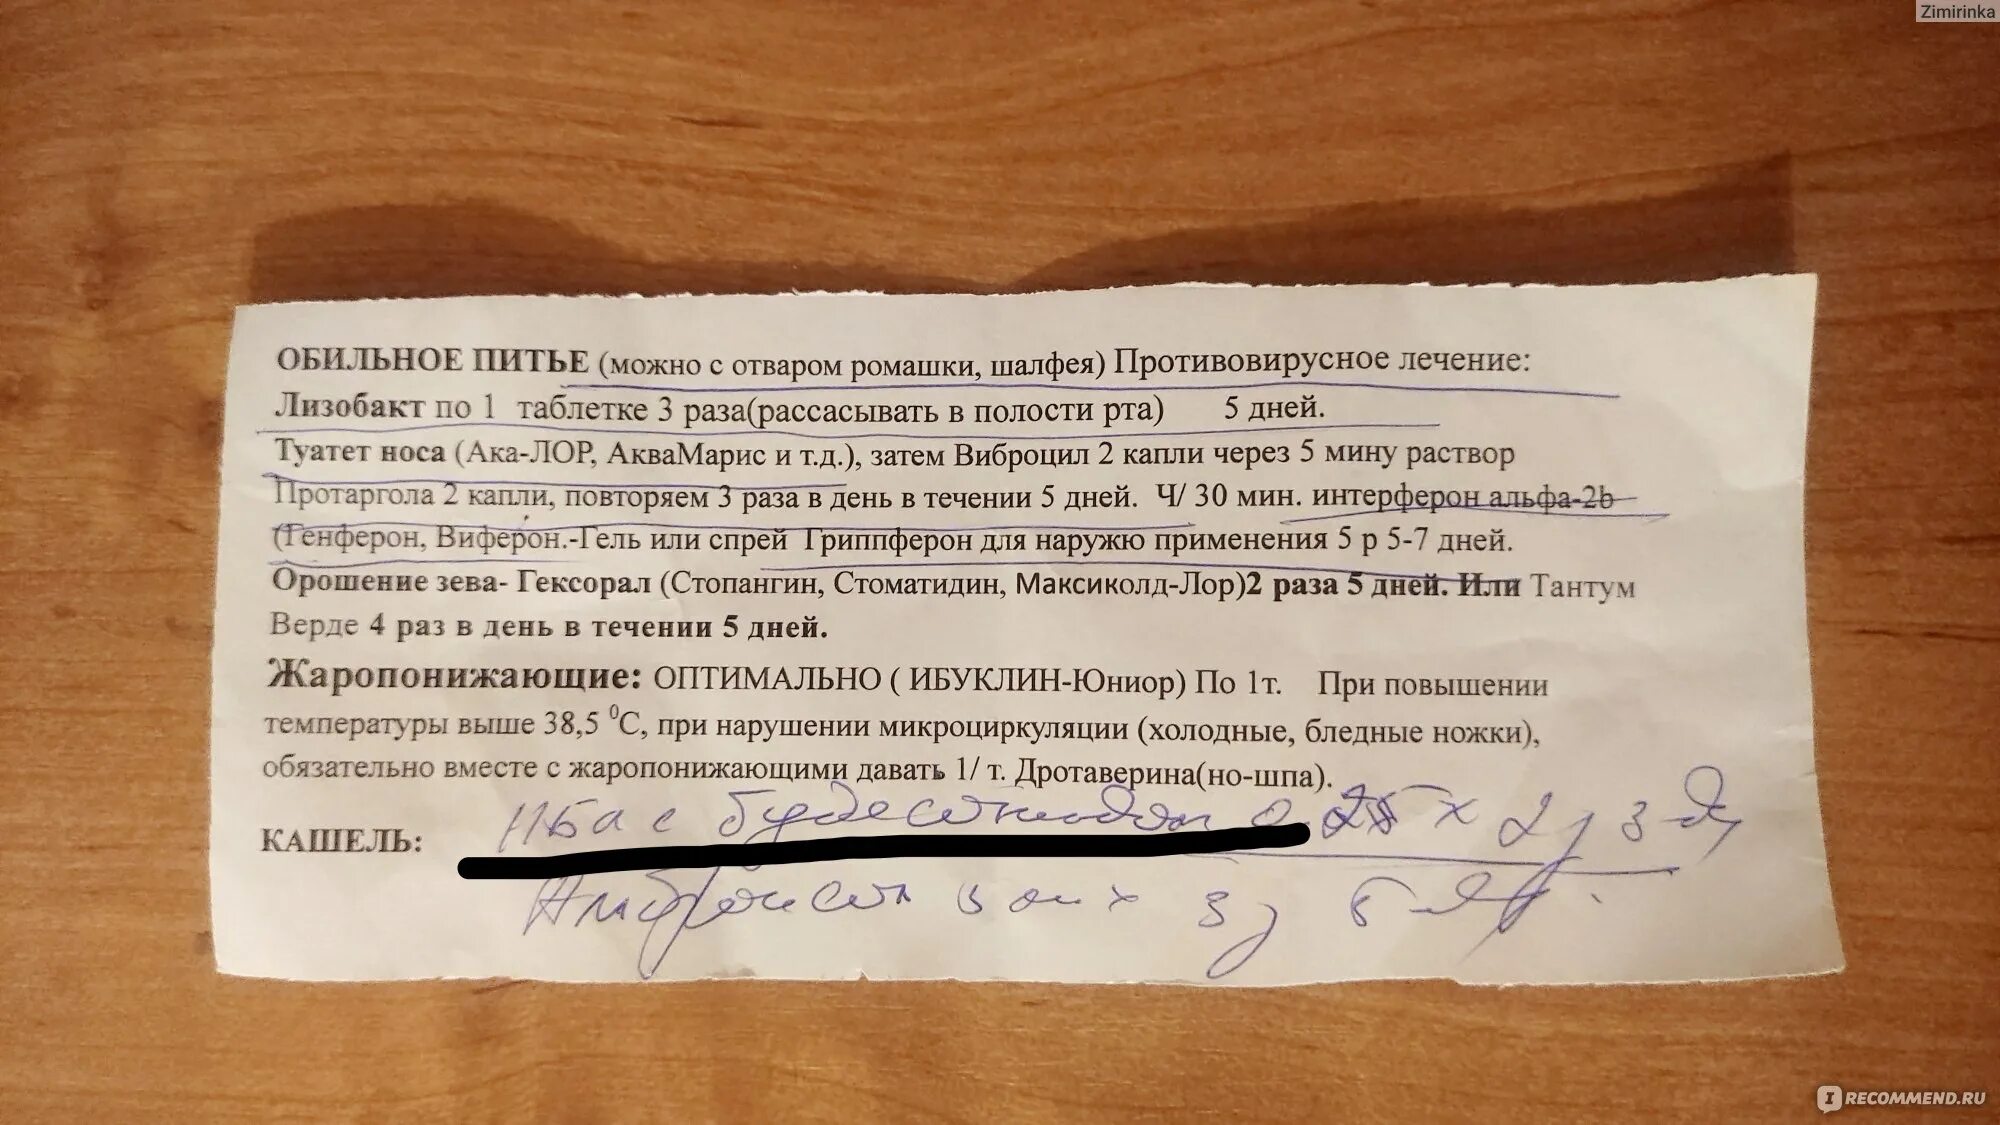 Zimirinka
ОБИЛЬНОЕ ПИТЬЕ (можно с отваром ромашки, шалфея) Противовирусное лечение:
Лизобакт по 1 таблетке 3 раза(рассасывать в полости рта) 5 дней.
Туатет носа (Ака-ЛОР, АкваМарис и т.д.), затем Виброцил 2 капли через 5 мину раствор
Протаргола 2 капли, повторяем 3 раза в день в течении 5 дней. Ч/ 30 мин. интерферон альфа-2b
(Генферон, Виферон.-Гель или спрей Гриппферон для наружю применения 5 р 5-7 дней.
Орошение зева- Гексорал (Стопангин, Стоматидин, Максиколд-Лор)2 раза 5 дней. Или Тантум
Верде 4 раз в день в течении 5 дней.
Жаропонижающие: ОПТИМАЛЬНО ( ИБУКЛИН-Юниор) По 1т. При повышении
температуры выше 38,5 ⁰С, при нарушении микроциркуляции (холодные, бледные ножки),
обязательно вместе с жаропонижающими давать 1/ т. Дротаверина(но-шпа).
КАШЕЛЬ: с будесонидом 0.25 х 2 3
5 х 3
I RECOMMEND.RU